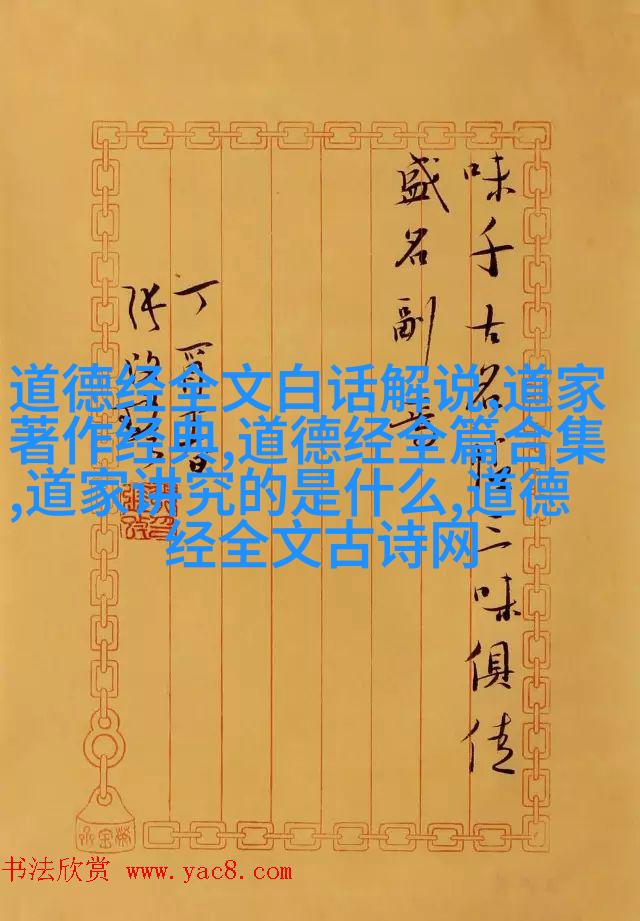 道德经全文白话解说,道家
著作经典,道德经全篇合集
,道家讲究的是什么,道德
经全文古诗网
味千古名三味俱佳
盛名副
丁酉春
张
书法欣赏 www.yac8.com